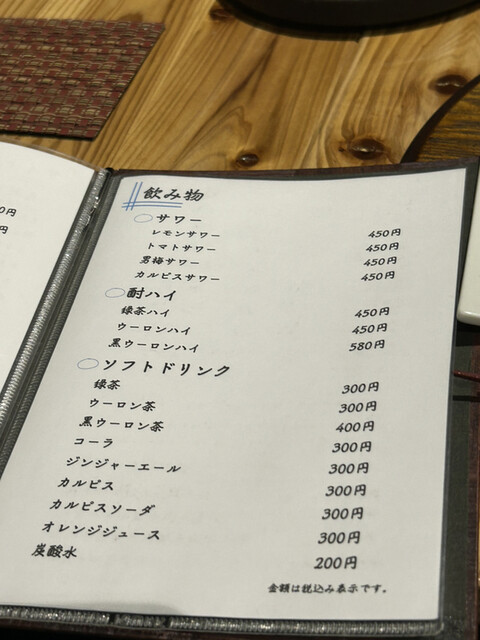 0円
円
飲み物
サワー
レモンサワー 450円
トマトサワー 450円
男梅サワー 450円
カルピスサワー 450円
酎ハイ
緑茶ハイ 450円
ウーロンハイ 450円
黒ウーロンハイ 580円
ソフトドリンク
緑茶 300円
ウーロン茶 300円
黒ウーロン茶 400円
コーラ 300円
ジンジャーエール 300円
カルピス 300円
カルピスソーダ 300円
オレンジジュース 300円
炭酸水 200円
金額は税込み表示です。